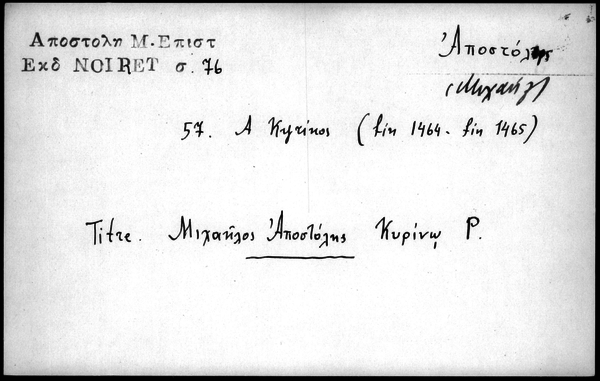 Αποστολη Μ. Επιστ
Εκδ NOIRET σ. 76
Ἀποστόλης
(Μιχαήλ)
57. A Kyrinos (fin 1464 - fin 1465)
Titre. Μιχαῆλος Ἀποστόλης Κυρίνῳ P.